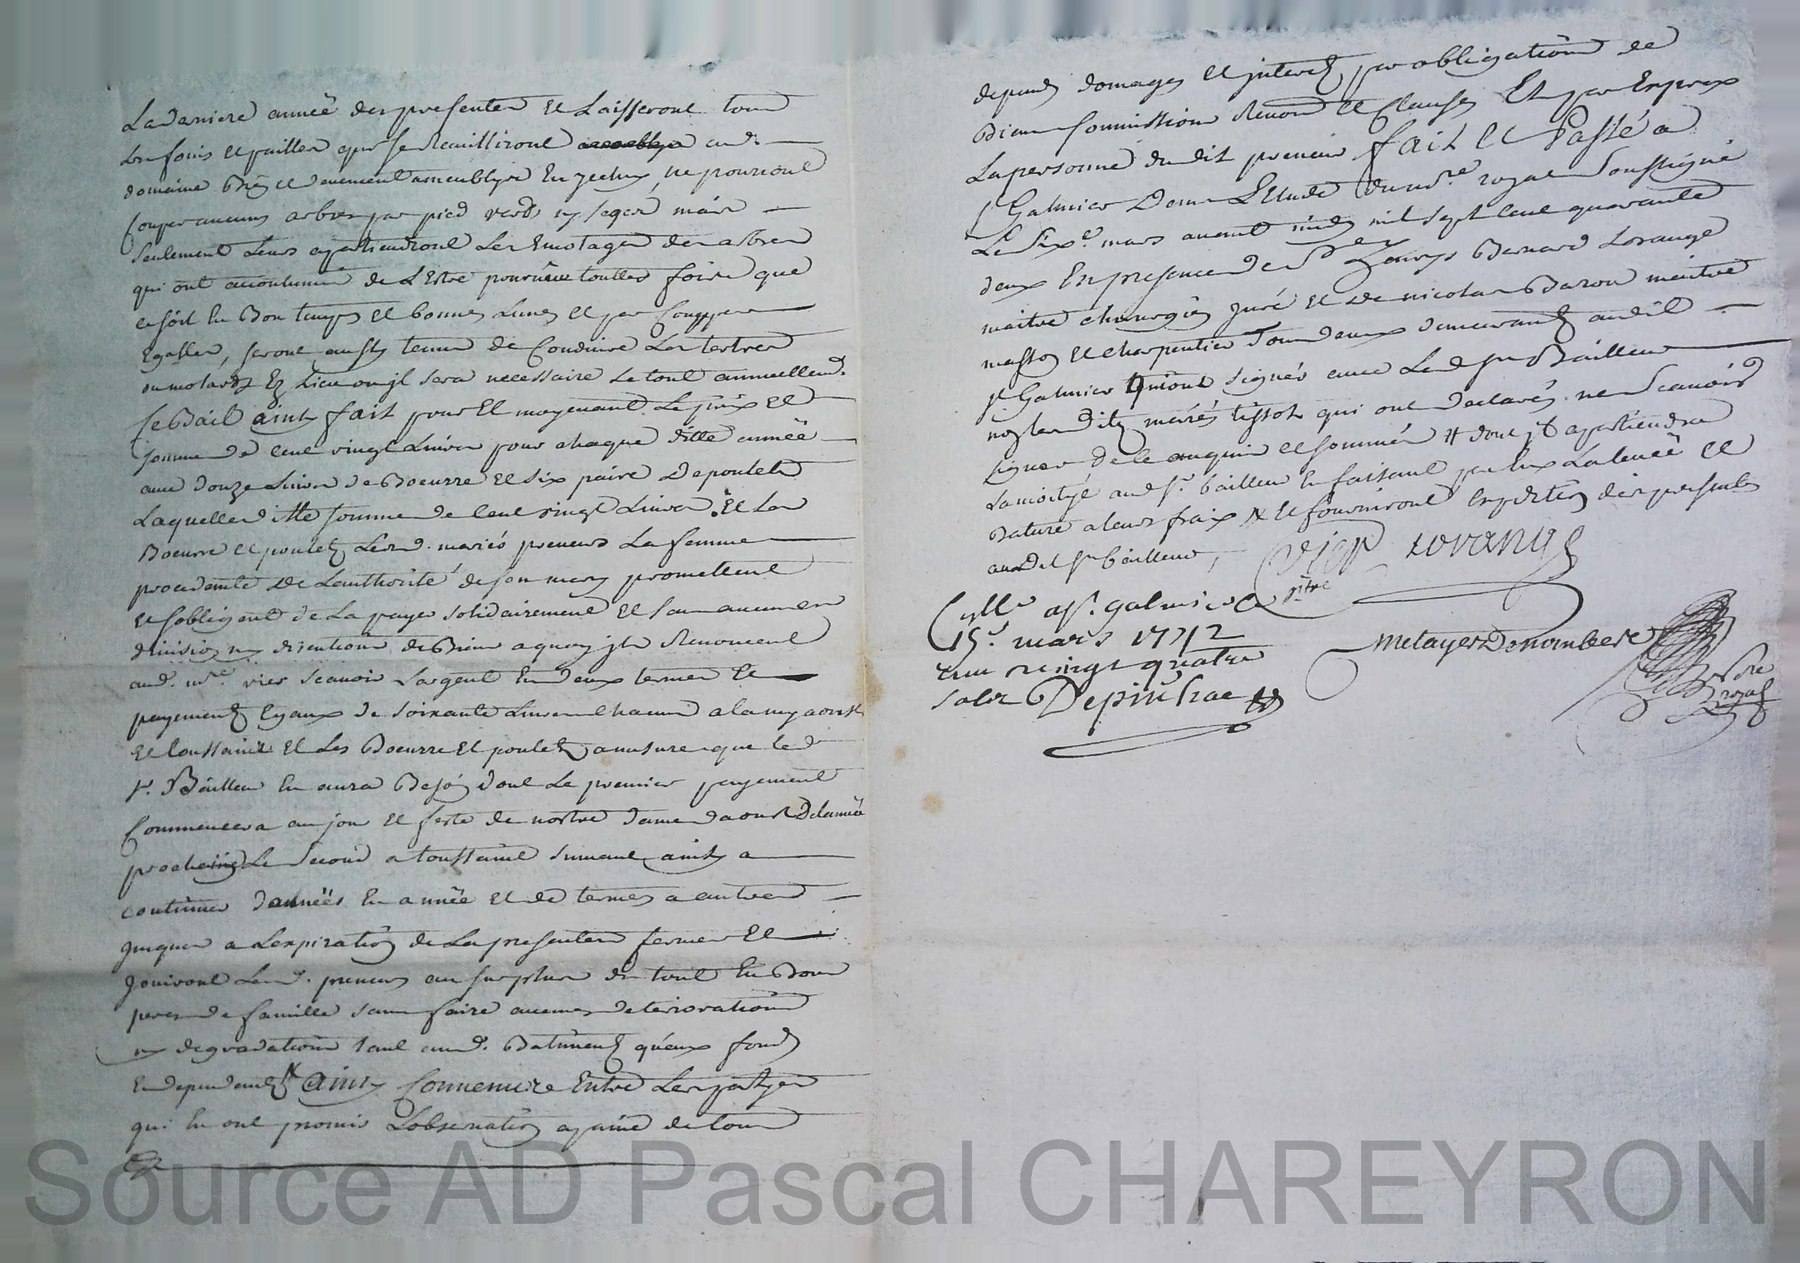 La derniere année des presentes et Laisseront tous
Les foins et pailles qui se Recuilliront aud.
domaine Bien et
Couper aucuns arbres par pied verds ny secqs mais
seulement Leurs apartiendront Les Emotages des arbres
qui ont accoutumé de L'Estre pourvûe touttes foire que
ce soit En Bon temps et bonnes Lunes et par Couppes
Egalles, seront aussy tenus de Conduire Les tertres
ou molards En Lieu ou jl sera necessaire Le tout annuellemt.
Ce Bail ainsy fait pour Et moyenant Le prix et
somme de Cent vingt Livres pour chaque ditte année
avec douze Livres de Boeurre et six paire de poulets
Laquelle ditte somme de Cent vingt Livres Et Les
Boeurre et poulets Lesd. mariés preneurs La femme
procedante de L'authorité de son mary promettent
et s'obligent de La payer solidairement Et sans aucunes
division ny disention de Biens a quoy jls Renoncent
aud. me. vier scavoir L'argent En deux termes Et
payements Egaux de soixante Livres Chacun a la my aoust
et toussaint Et Les Boeurre Et poulets a mesure que led.
sr. Bailleur En aura Besoin dont Le premier payement
Commencera au jour et feste de nostre dame d'aoust De Lannée
prochaine Le second a toussaint suivant ainsy a
continuer d'années En année et de termes a autres
jusques a L'expiration de La presente ferme Et
Jouiront Lesd. preneurs au surplus du tout En Bons
peres de famille sans faire aucunes deterioration
ny degradations tant aud. Batiments qu'eux fonds
En dependents ainsy Convenu Entre Les partyes
qui En ont promis L'observation a peine de tous
depends domages et jnterets par obligations de
Biens soumissions Renond. et Clauses Et par Exprex
La personne du dit preneur fait et Passé a
st Galmier Dans L'Etude du nore. royal soussigné
Le sixe. mars avant midy mil sept Cent quarante
deux En presence de sr Bernard Lorange
maitre chirurgien juré et de nicolas Baron maitre
masson et charpentier tous deux demeurants audit
st Galmier qui ont signés avec Led sr Bailleur
non Lesdits mariés tissot qui ont declarés ne scavoir
signer de ce enquis et sommés # dont jl apartiendra
La moityé aud sr. bailleur En faisant par Eux La Levée et
Bature a Leurs frais # et fourniront Expedition des presentes
audit sr bailleur,
Vier Lorange
Collé a st. galmier
15e. mars 1742
reçu vingt quatre
sols Depinhac
metayer
nore
royal
Source AD Pascal CHAREYRON